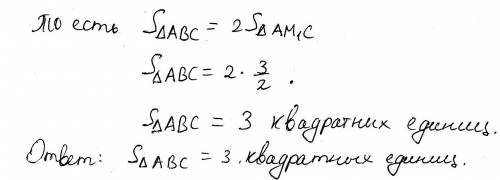 То есть S△ABC = 2S△AM₁C
S△ABC = 2 · 3/2 .
S△ABC = 3 квадратних единиц.
Ответ: S△ABC = 3. квадратных единиц.